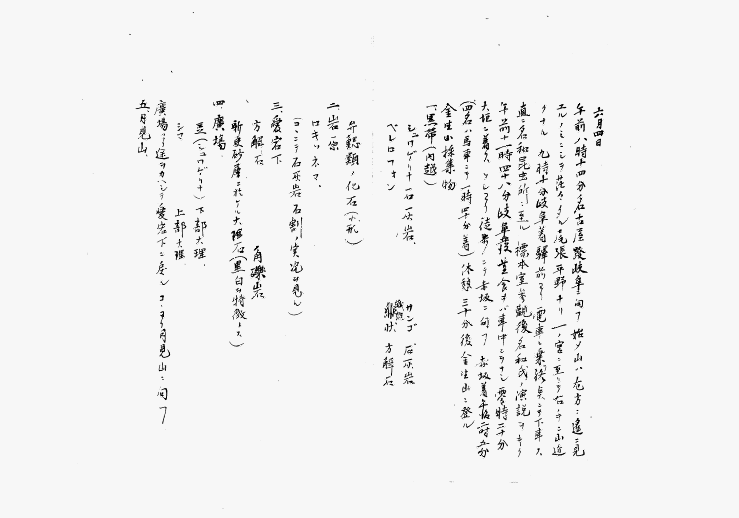 六月四日
午前八時十四分名古屋發岐阜ニ向フ 始メ山ハ右方ニ遠ク見
エルノミニシテ茫々タル尾張平野ナリ 一ノ宮ニ至レバ右手ニ山近
クナル 九時十分岐阜着驛前ヨリ電車ニ乗リ終点ニテ下車ス
直ニ名和昆虫所ニ至ル 標本室参觀後名和氏ノ演説ヲキク
午前十一時四十八分岐阜發 昼食ヲバ車中ニテナシ 零時二十分
大垣ニ着ス ソレヨリ徒歩ニテ赤坂ニ向フ 赤坂着午后二時五分
(四名ハ馬車ニテ一時四十分着)休憩三十分後金生山ニ登ル
金生山採集物
一、黒帯(内越)
シュワゲリナー石灰岩、 サンゴ石灰岩
ベレロフォン 纖維状 方解石
二、岩一保
介鰓類ノ化石(小形)
ロキソネマ、
(ココニテ石灰岩石割ノ実况ヲ見ル)
三、愛宕下
方解石 角礫岩
四、廣場
新炭砂層ニ於ケル大理石(黒白ノ特徴トス)
黒(シュワゲリナ)下部大理、
シマ 上部大理
廣場ヨリ途ヲカヘシテ愛宕下ニ戻レココヨリ月見山ニ向フ
五、月見山、